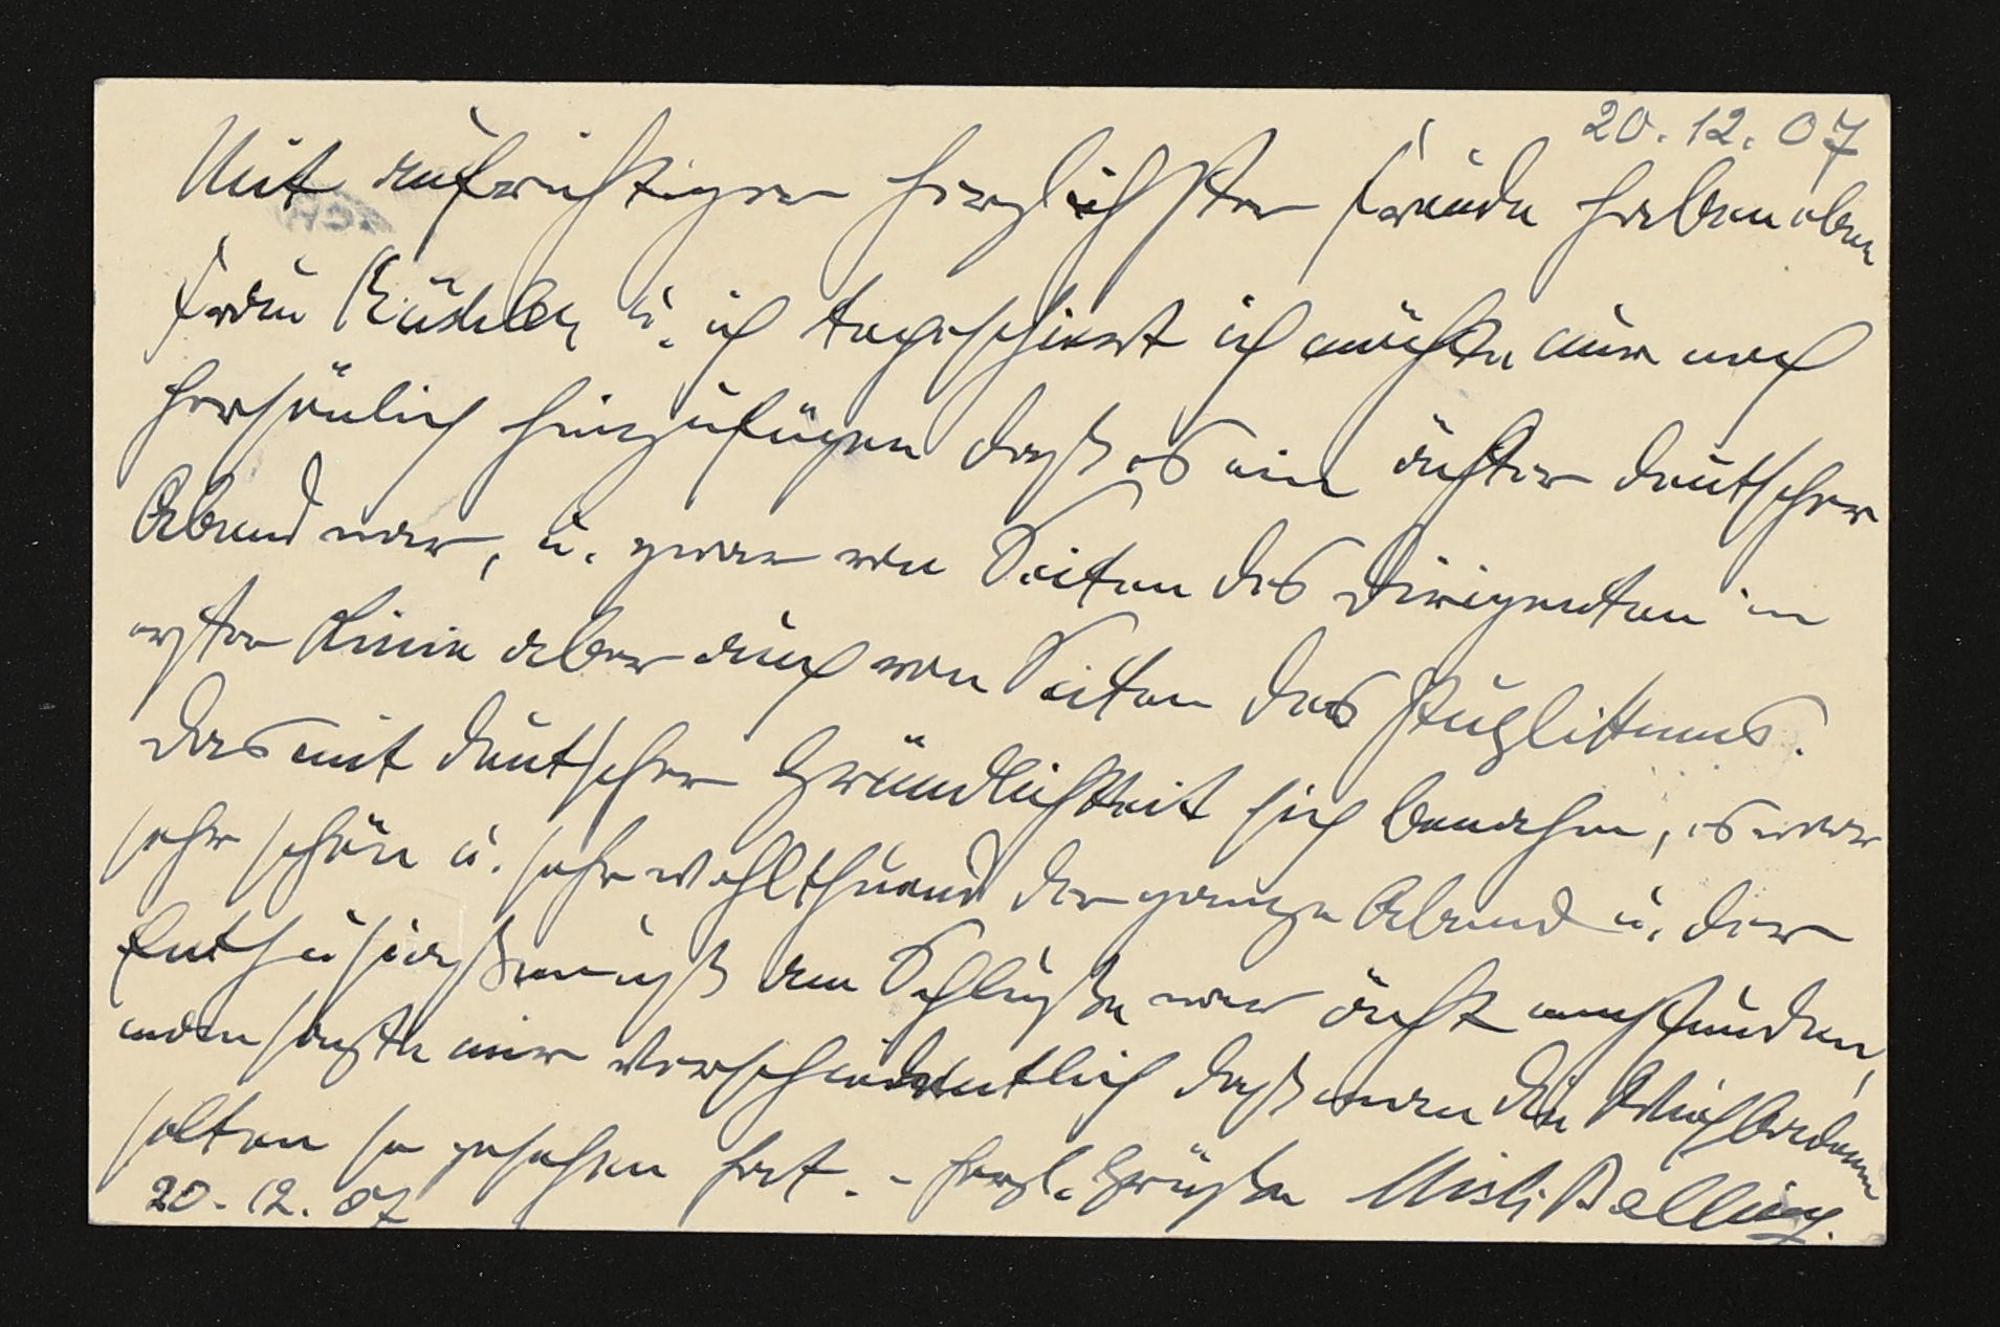 20.12.07
Mit aufrichtiger herzlichster Freude haben eben
Frau Küchler u. ich tegraphiert ich möchte nur noch
persönlich hinzufügen daß es ein ächter deutscher
Abend war, u. zwar von Seiten des Dirigenten in
erster Linie aber auch von Seiten des Publikums.
Das mit deutscher Gründlichkeit sich benahm, es war
sehr schön u. sehr wohlthuend der ganze Abend u. der
Enthusiasmus am Schluße war ächt empfunden,
man sagte mir daß man die Wiesbadener
selten so gesehen hat. - Herzl. Grüße
20.12.07